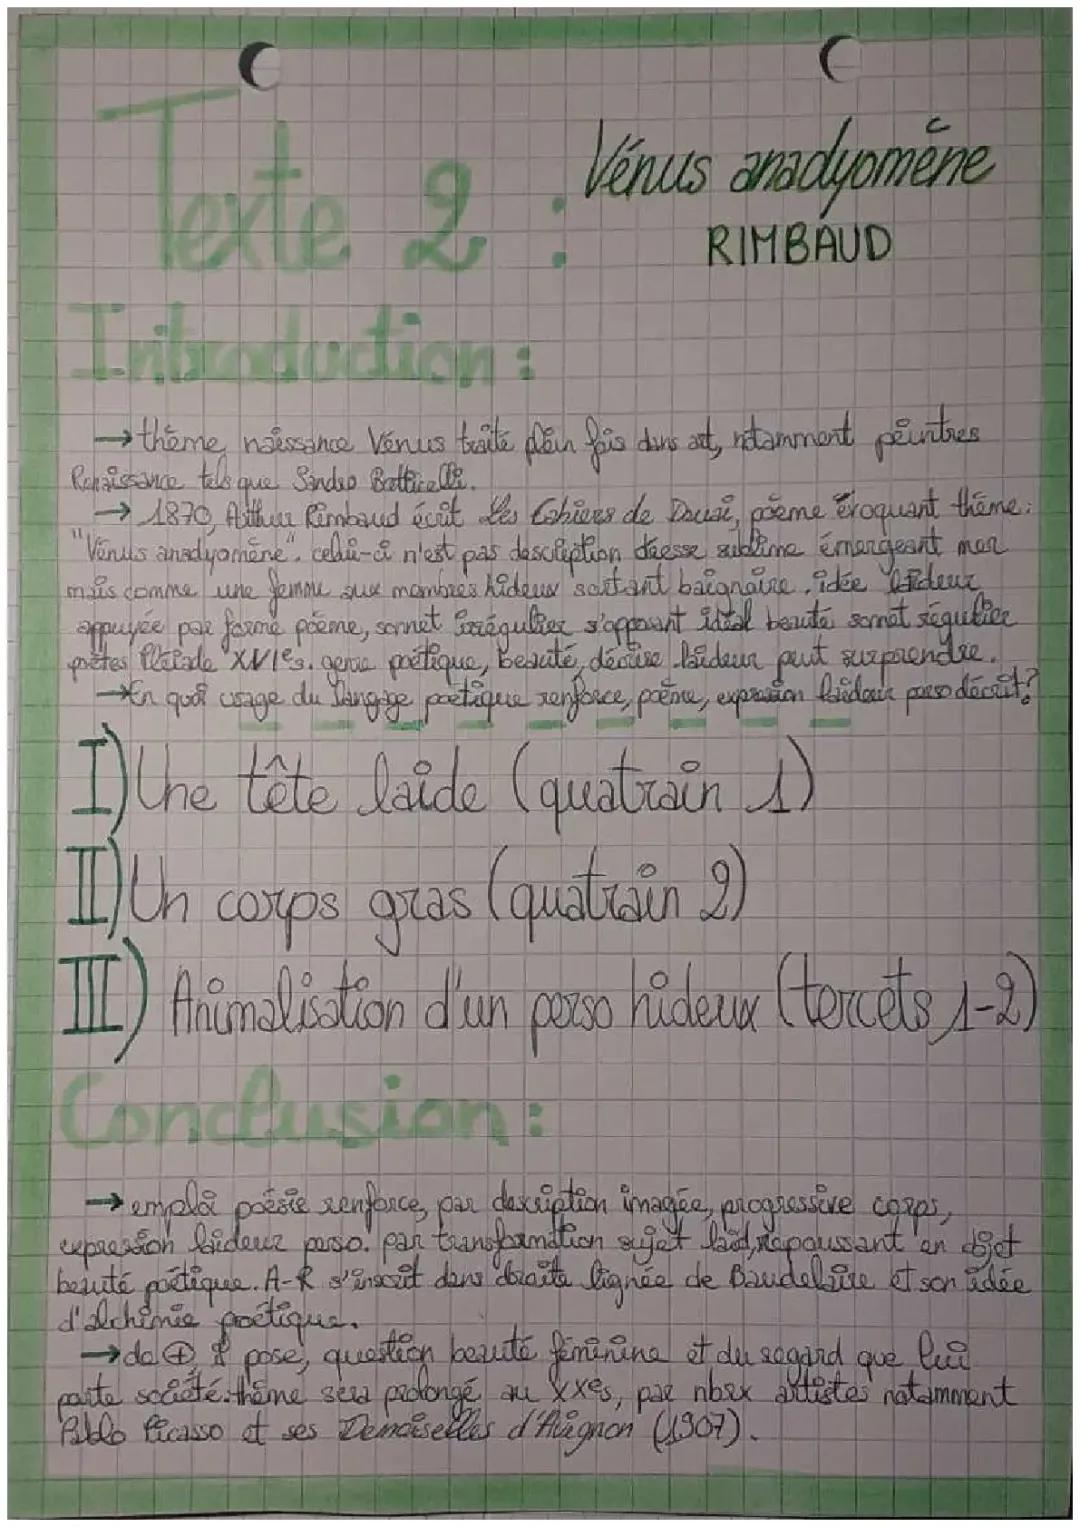 Texte 2 : Vénus anadyomène
RIMBAUD
Introduction :
→ thème, naissance Vénus traité plein fois dans art, notamment peintres
Renaissance tels que Sandro Botticelli.
→ 1870, Arthur Rimbaud écrit Les Cahiers de Douai, poème évoquant thème :
"Vénus anadyomène". celui-ci n'est pas description déesse sublime émergeant mer
mais comme une femme aux membres hideux sortant baignoire. idée laideur
appuyée par forme poème, sonnet irrégulier s'opposant idéal beauté sonnet régulier
poètes Pléiade XVIes. genre poétique, beauté, décrire laideur peut surprendre.
→ En quoi usage du langage poétique renforce, poème, expression laideur perso décrit ?
I) Une tête laide (quatrain 1)
II) Un corps gras (quatrain 2)
III) Animalisation d'un perso hideux (tercets 1-2)
Conclusion :
→ emploi poésie renforce, par description imagée, progressive corps,
expression laideur perso. par transformation sujet laid, repoussant en objet
beauté poétique. A-R s'inscrit dans droite lignée de Baudelaire et son idée
d'alchimie poétique.
→ de ⊕, pose, question beauté féminine et du regard que lui
porte société. thème sera prolongé au XXes, par nbrx artistes notamment
Pablo Picasso et ses Demoiselles d'Avignon (1907).